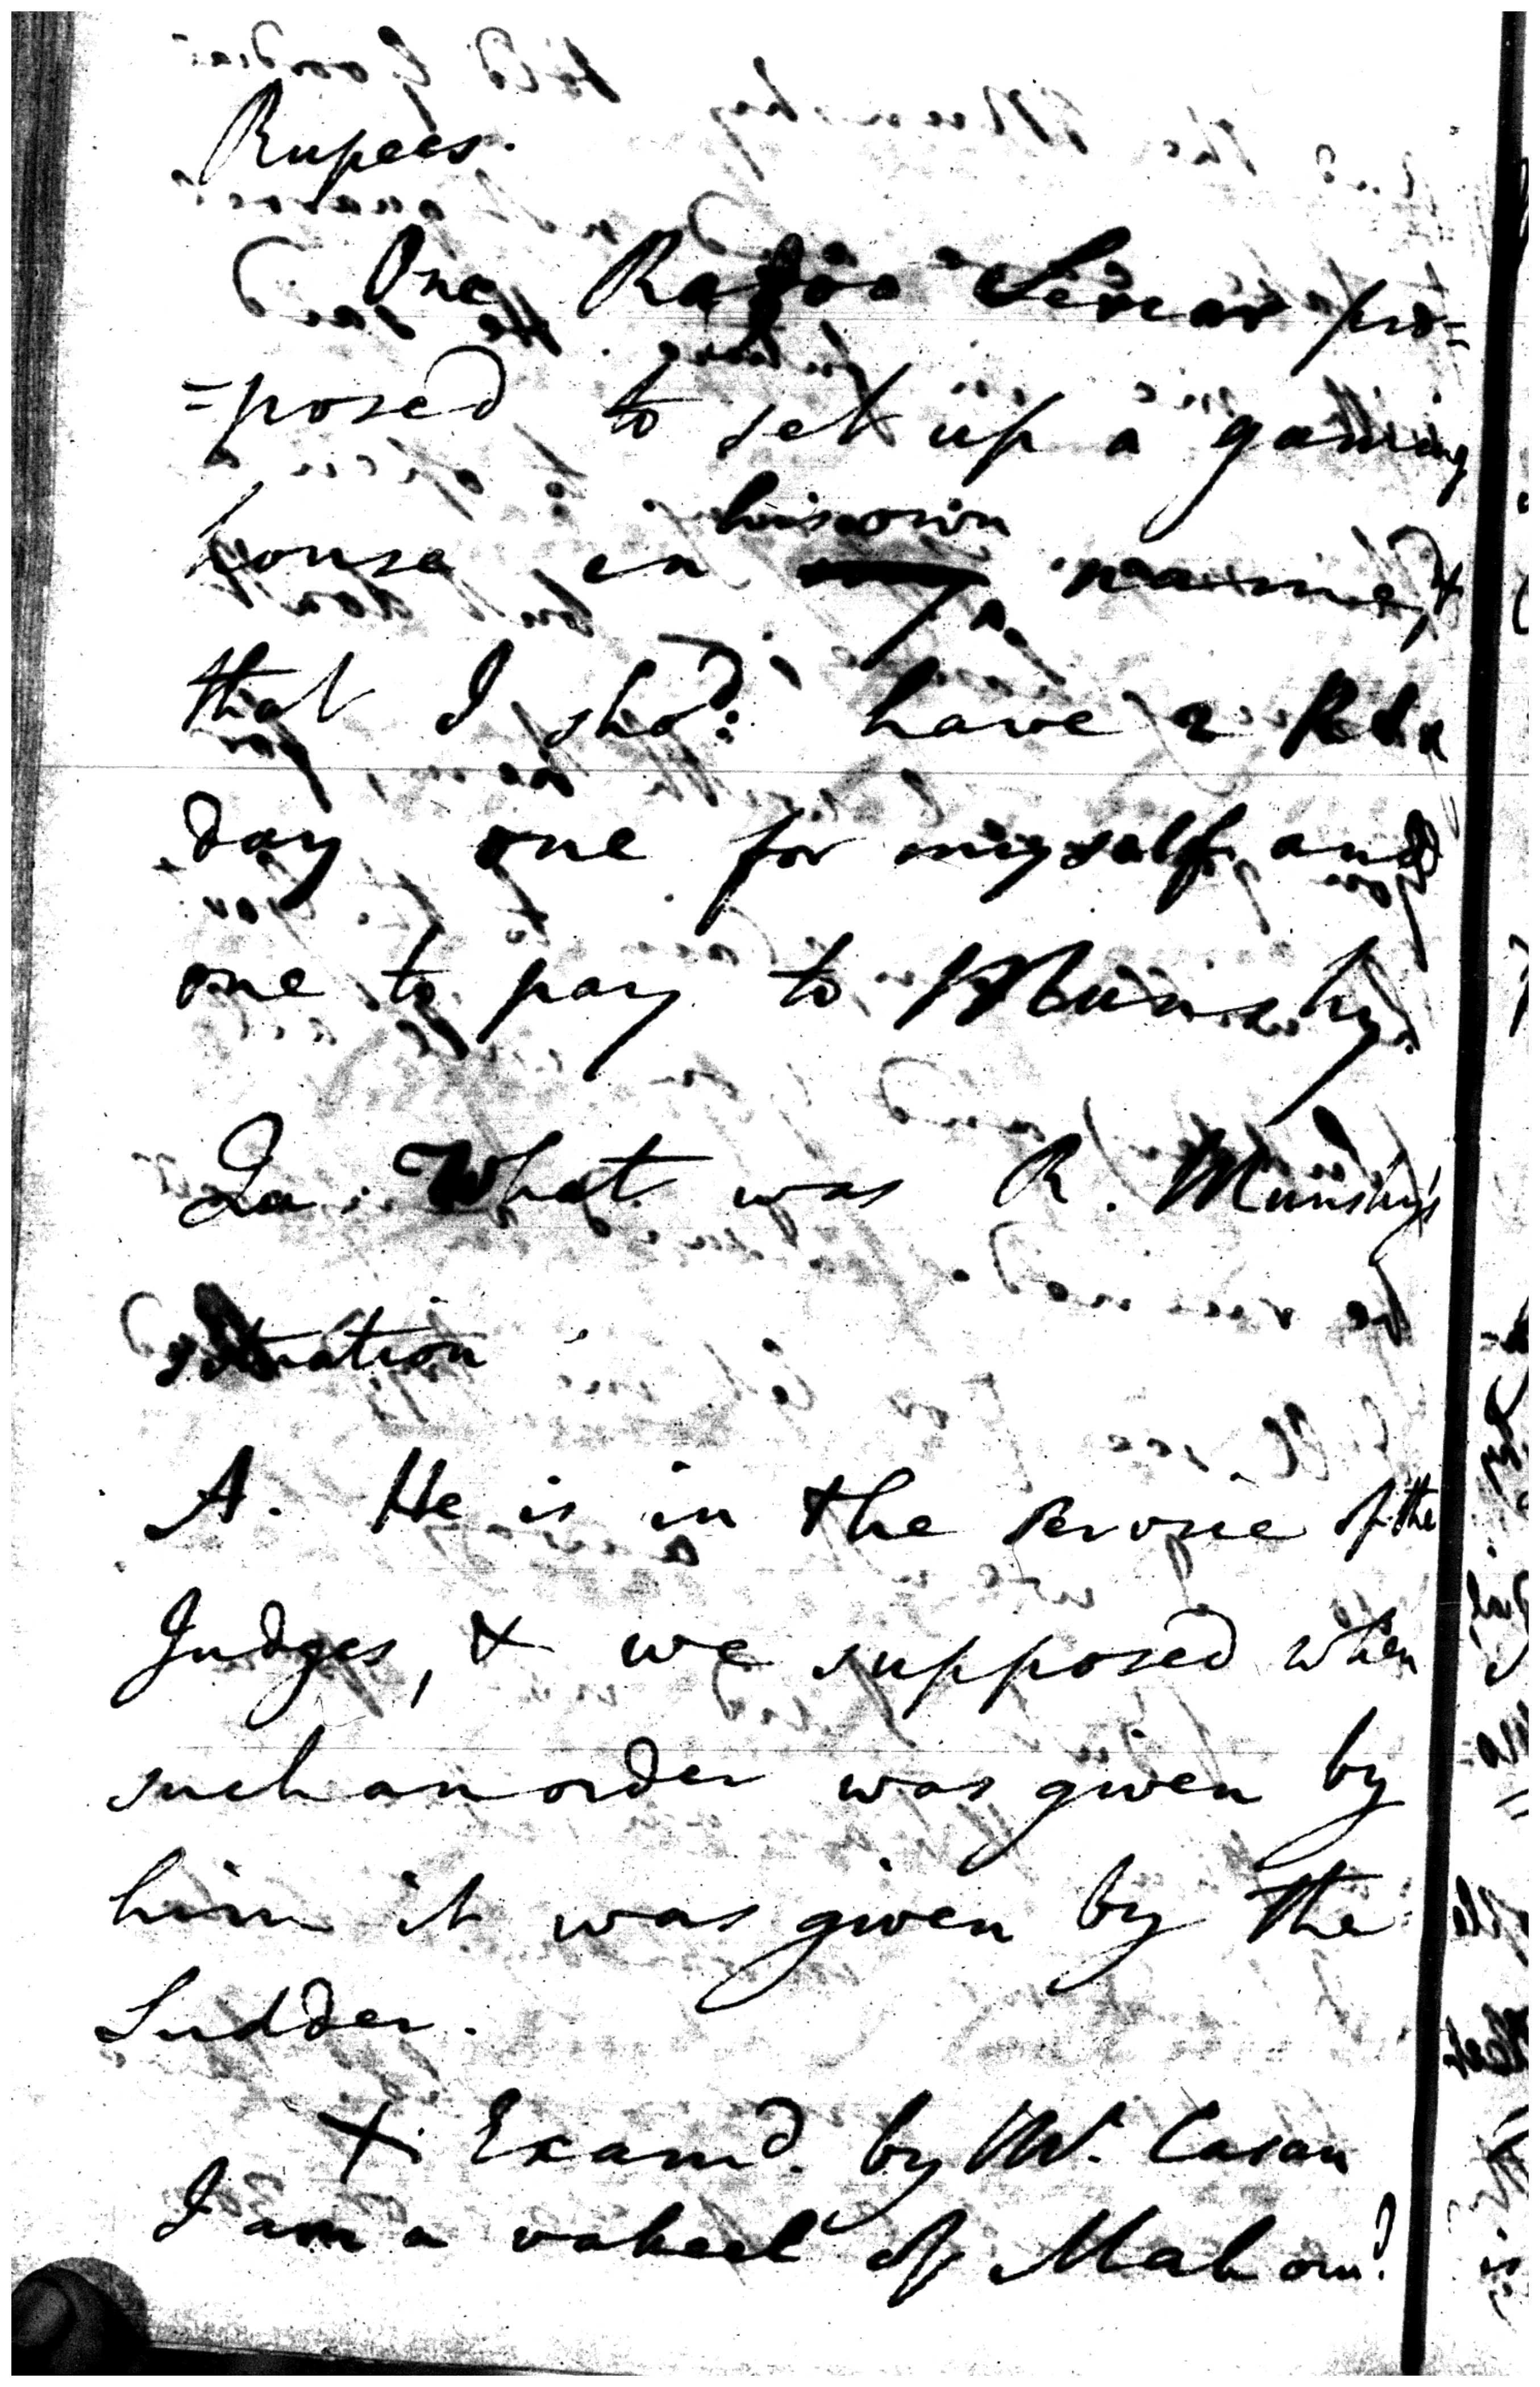 Rupees.
One Sircar pro=
=posed to set up a gaming
house in his own name, &
that I sho:d have 2 Rs. a
day one for myself and
one to pay to Munshy.
Qu. What was R. Munshy's
situation
A. He is in the service of the
Judges, & we supposed when
such an order was given by
him it was given by the
Sudder.
X Examd. by Mr. Casan
I am a vakeel of Mahomd.